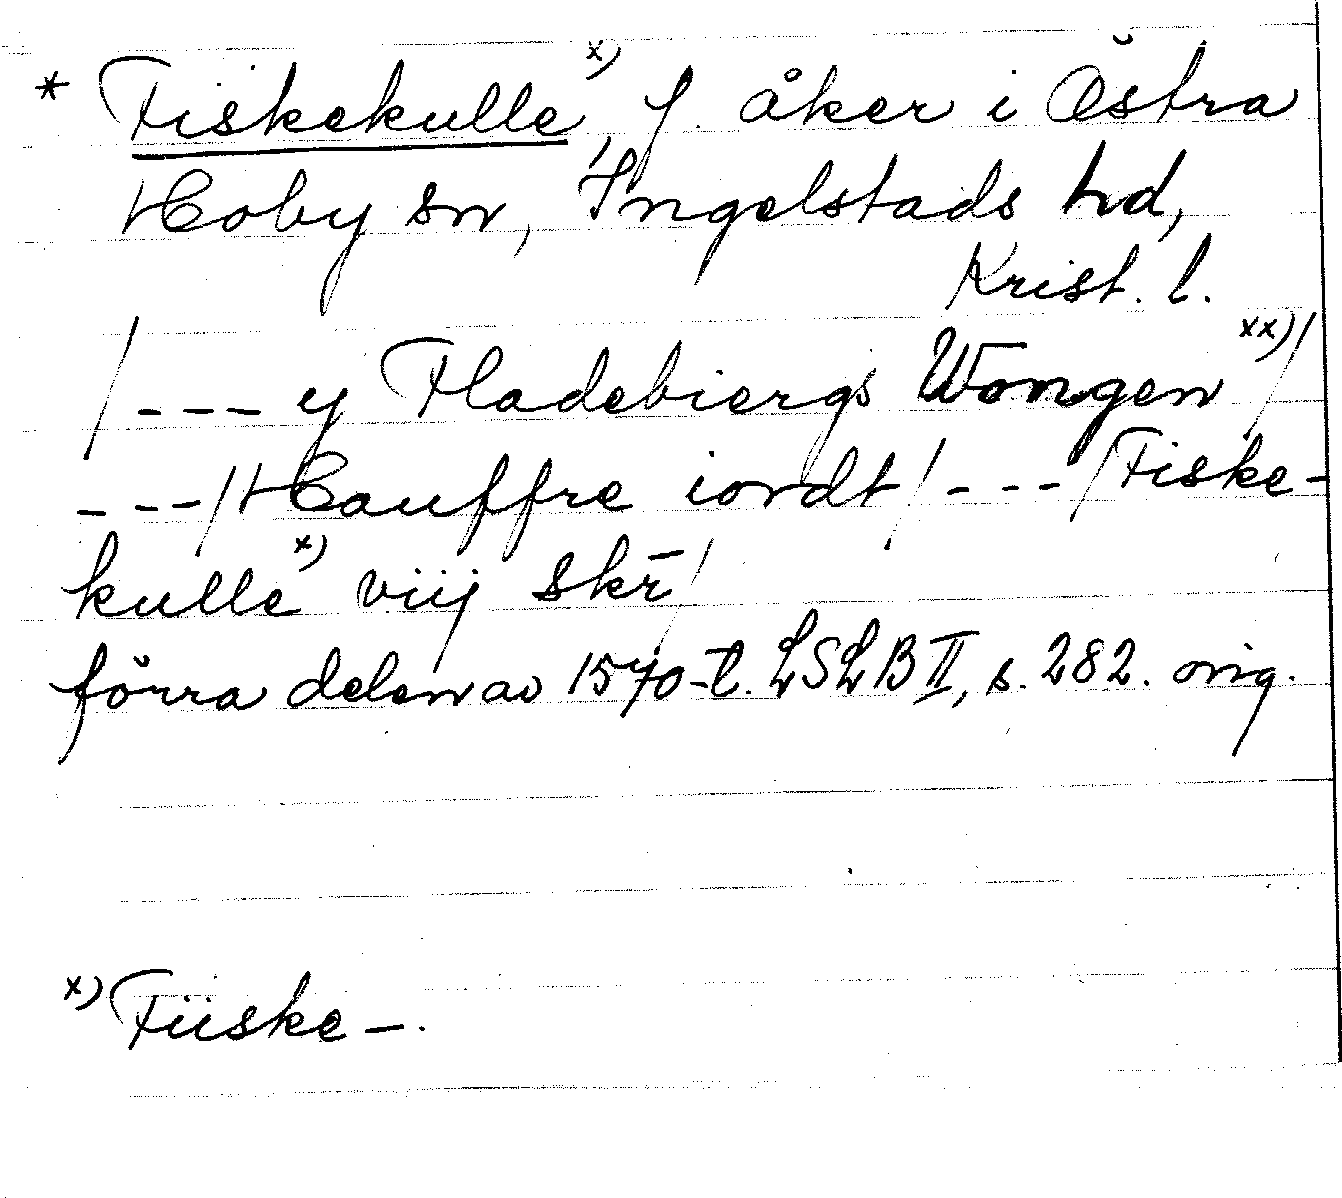 * Fiskekulle x), f. åker i Östra
Hoby sn, Ingelstads hd,
Krist. l.
/ --- y Fladebiergs Wongen xx) /
--- / Hauffre iordt / --- / Fiske-
kulle x) viij skr̄ /
förra delen av 1570-t. LSLB II, s. 282. orig.
x) Füske -.